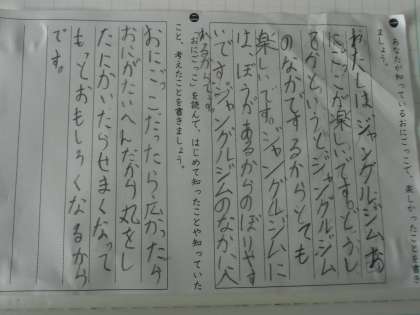 一 あなたが知っているおにごっこで、楽しかったことを書き
ましょう。
わたしは、ジャングルジムお
にごっこが楽しいです。どうし
てかというとジャングルジム
のなかでするからとても
楽しいです。ジャングルジムに
は、ぼうがあるからのぼりやす
いです。ジャングルジムのなかに
二 「おにごっこ」を読んで、はじめて知ったことや知っていた
こと、考えたことを書きましょう。
おにごっこだったら広かったら
おにがたいへんだから丸をし
たにかいたらせまくなって
もっとおもしろくなるから
です。